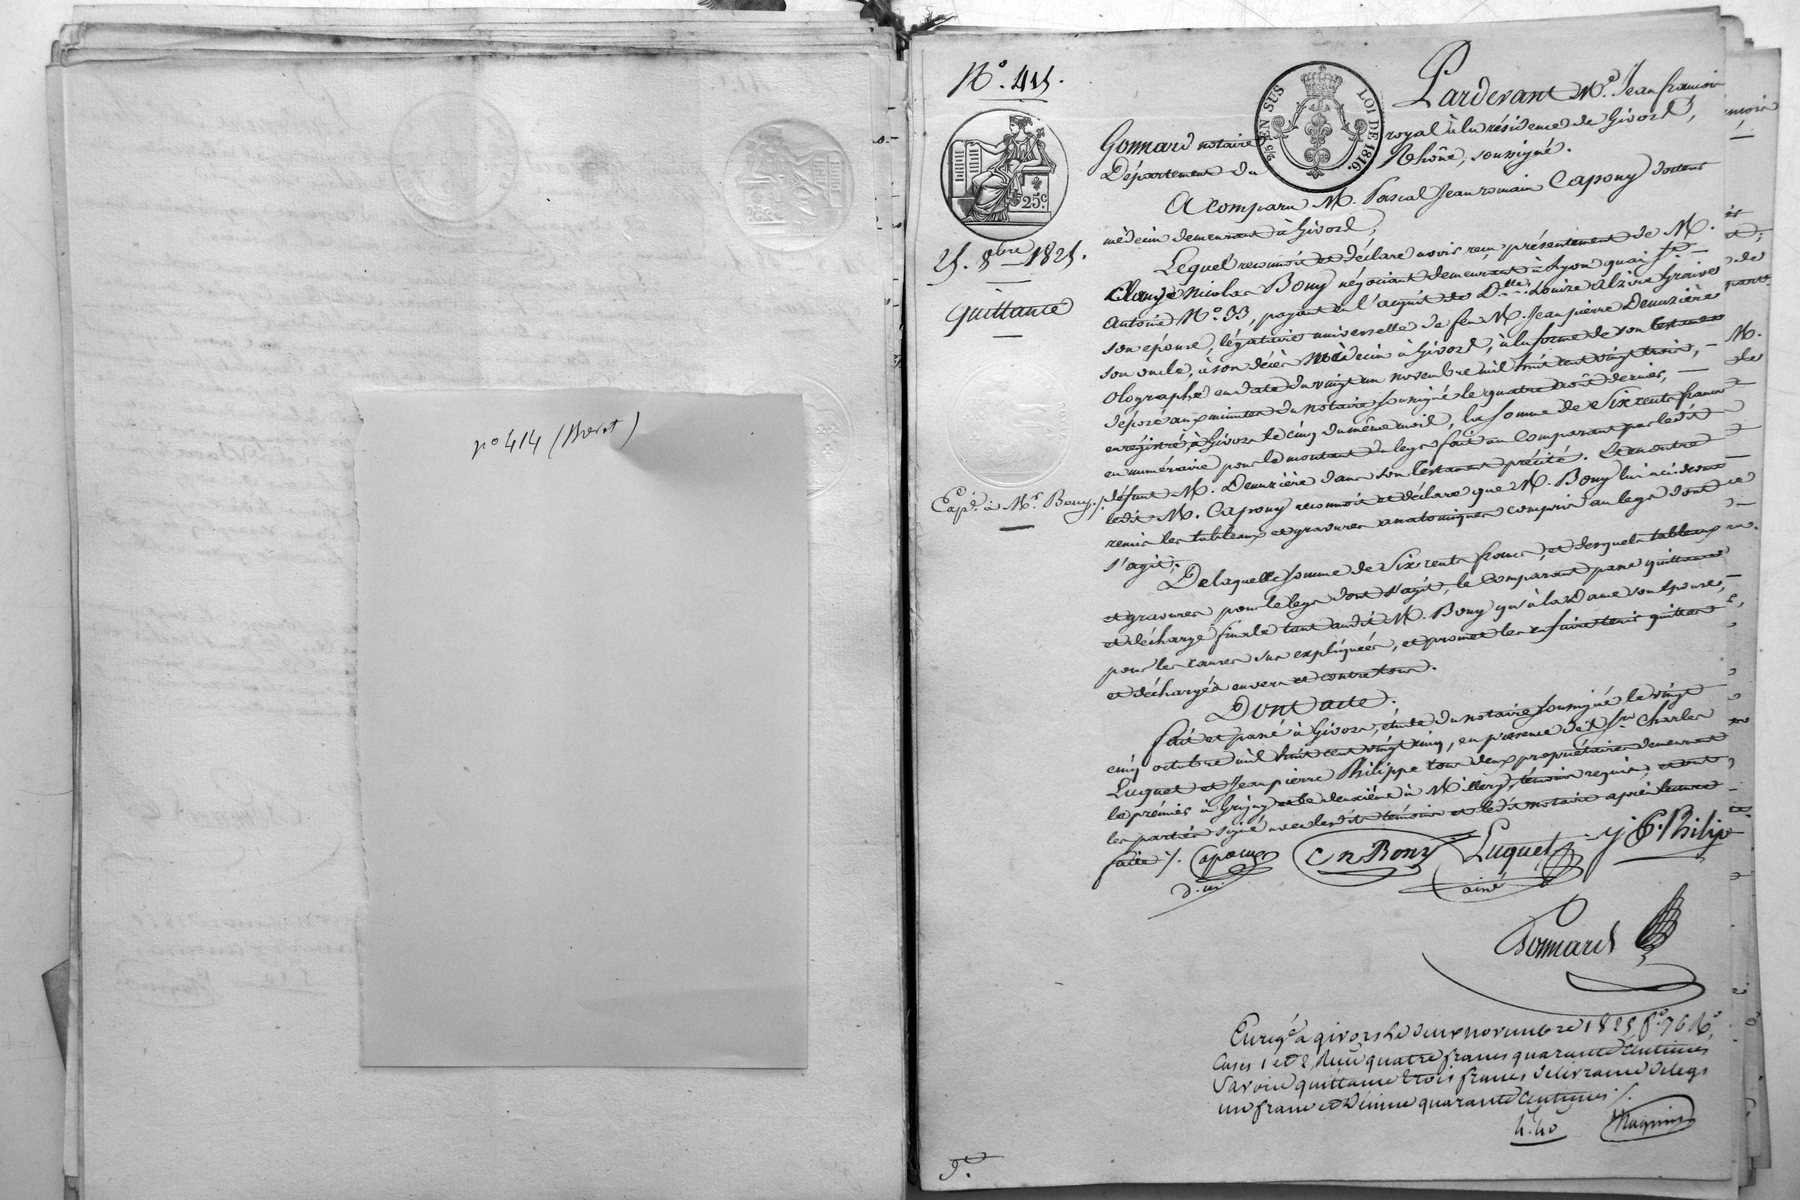 nº 414 (Boret)
Nº. 415.
25. 8bre 1825.
Quittance
Expé. à Mr. Bony ./.
25c
2/5 EN SUS
LOI DE 1816.
Pardevant Me. Jean françois
Gonnard notaire royal à la résidence de Givors,
Département du Rhône, soussigné.
A comparu M. Pascal Jean romain Capony docteur
médecin demeurant à Givors,
Lequel reconnoit et déclare avoir reçu présentement de M.
Claude Nicolas Bony négociant demeurant à Lyon quai St.
Antoine Nº. 33, payant en l'acquit de Dlle. Louise Alzire
son épouse, légataire universelle de feu M. Jean pierre Deuzière
son oncle, à son décès médecin à Givors, à la forme de son testament
olographe en date du vingt un novembre mil huit cent vingt trois,
déposé aux minutes du notaire soussigné le quatre août dernier,
enregistré à Givors le cinq du même mois, la somme de Six cents francs
en numéraire pour le montant du legs fait au comparant par ledit
défunt M. Deuzière dans son testament précité. Et en outre
ledit M. Capony reconnoit et déclare que M. Bony lui a ci dessus
remis les tableaux et gravures anatomiques compris au legs dont
s'agit;
De laquelle somme de Six cents francs, et desquels tableaux
et gravures pour le legs dont s'agit, le comparant passe quittance
et décharge finale tant audit M. Bony qu'à la Dame son épouse,
pour les causes sus expliquées, et promet les en faire tenir quittes
et déchargés envers et contre tous.
Dont acte.
fait et passé à Givors, étude du notaire soussigné le vingt
cinq octobre mil huit cent vingt cinq, en présence de Srs. Charles
Luquet et Jean pierre Philippe tous deux propriétaires demeurant
le premier à Grigny et le deuxième à Millery, témoins requis, et ont
les parties signé avec lesdits témoins et ledit notaire après lecture
faite ./. Capony
d.m.
Cn Bony
Luquet
ainé
J. P. Philipe
Gonnard
Enregé. à givors le deux novembre 1825 fº. 76 Rº.
Cases 1 et 2 Reçu quatre francs quarante centimes
Savoir quittance trois francs, délivrance de legs
un franc et dixième quarante centimes ./.
4.40